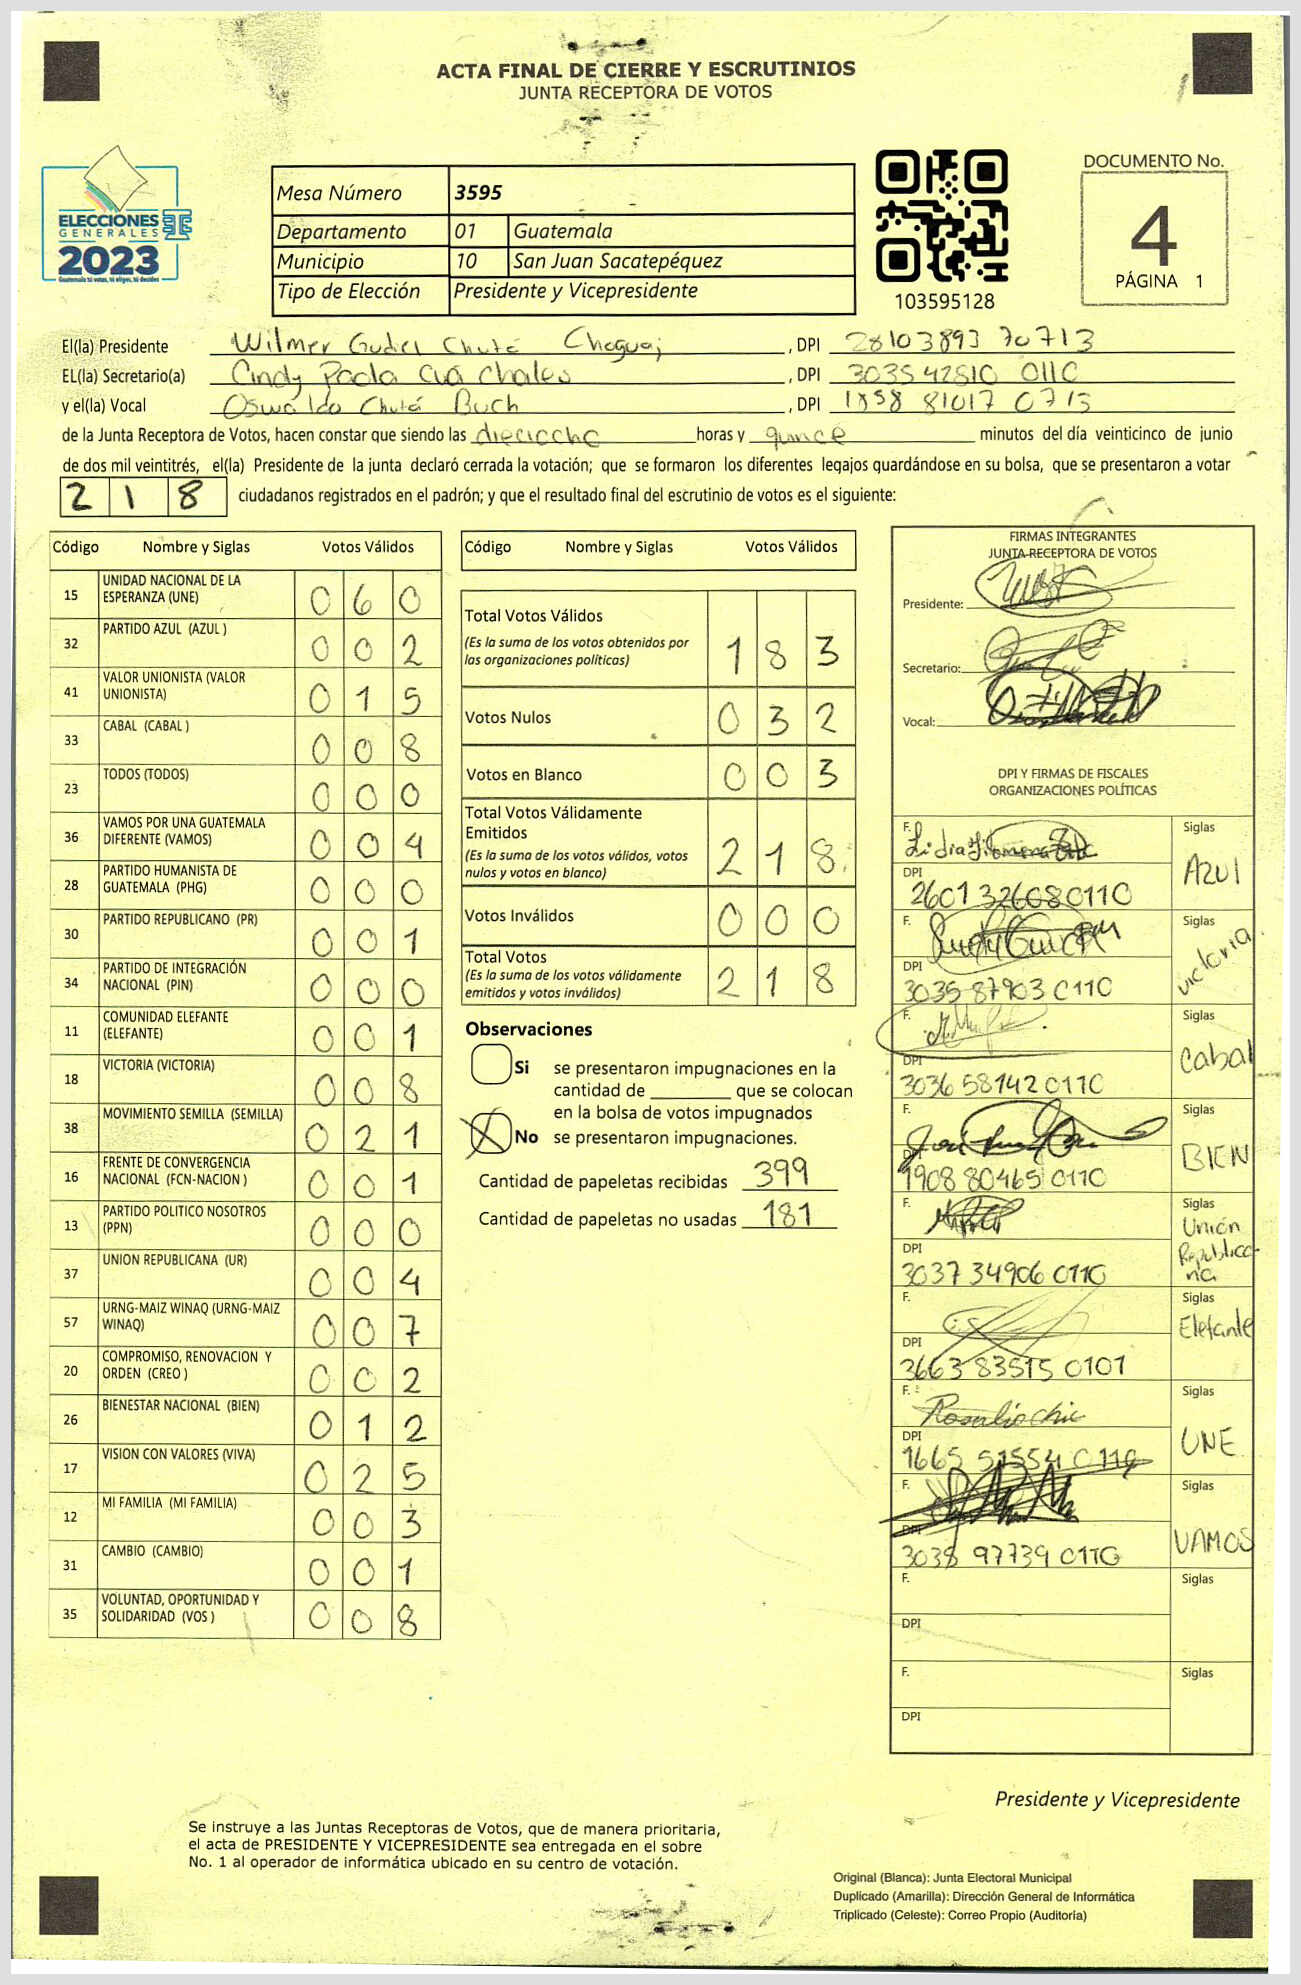 ACTA FINAL DE CIERRE Y ESCRUTINIOS
JUNTA RECEPTORA DE VOTOS
ELECCIONES
GENERALES
2023
Guatemala tú votas, tú eliges, tú decides
Mesa Número 3595
Departamento 01 Guatemala
Municipio 10 San Juan Sacatepéquez
Tipo de Elección Presidente y Vicepresidente
103595128
DOCUMENTO No.
4
PÁGINA 1
El(la) Presidente Wilmer Gudiel Chutá , DPI 28103893 70713
EL(la) Secretario(a) Cindy Paola Cuá Chales , DPI 303542810 0110
y el(la) Vocal Oswaldo Chutá Buch , DPI 1858 81017 0713
de la Junta Receptora de Votos, hacen constar que siendo las dieciocho horas y quince minutos del día veinticinco de junio
de dos mil veintitrés, el(la) Presidente de la junta declaró cerrada la votación; que se formaron los diferentes legajos guardándose en su bolsa, que se presentaron a votar
218 ciudadanos registrados en el padrón; y que el resultado final del escrutinio de votos es el siguiente:
Código Nombre y Siglas Votos Válidos
15 UNIDAD NACIONAL DE LA ESPERANZA (UNE) 060
32 PARTIDO AZUL (AZUL ) 002
41 VALOR UNIONISTA (VALOR UNIONISTA) 015
33 CABAL (CABAL ) 008
23 TODOS (TODOS) 000
36 VAMOS POR UNA GUATEMALA DIFERENTE (VAMOS) 004
28 PARTIDO HUMANISTA DE GUATEMALA (PHG) 000
30 PARTIDO REPUBLICANO (PR) 001
34 PARTIDO DE INTEGRACIÓN NACIONAL (PIN) 000
11 COMUNIDAD ELEFANTE (ELEFANTE) 001
18 VICTORIA (VICTORIA) 008
38 MOVIMIENTO SEMILLA (SEMILLA) 021
16 FRENTE DE CONVERGENCIA NACIONAL (FCN-NACION ) 001
13 PARTIDO POLITICO NOSOTROS (PPN) 000
37 UNION REPUBLICANA (UR) 004
57 URNG-MAIZ WINAQ (URNG-MAIZ WINAQ) 007
20 COMPROMISO, RENOVACION Y ORDEN (CREO ) 002
26 BIENESTAR NACIONAL (BIEN) 012
17 VISION CON VALORES (VIVA) 025
12 MI FAMILIA (MI FAMILIA) 003
31 CAMBIO (CAMBIO) 001
35 VOLUNTAD, OPORTUNIDAD Y SOLIDARIDAD (VOS ) 008
Código Nombre y Siglas Votos Válidos
Total Votos Válidos 183
(Es la suma de los votos obtenidos por
las organizaciones políticas)
Votos Nulos 032
Votos en Blanco 003
Total Votos Válidamente
Emitidos 218
(Es la suma de los votos válidos, votos
nulos y votos en blanco)
Votos Inválidos 000
Total Votos 218
(Es la suma de los votos válidamente
emitidos y votos inválidos)
Observaciones
Si se presentaron impugnaciones en la
cantidad de ________ que se colocan
en la bolsa de votos impugnados
No se presentaron impugnaciones.
Cantidad de papeletas recibidas 399
Cantidad de papeletas no usadas 181
FIRMAS INTEGRANTES
JUNTA RECEPTORA DE VOTOS
Presidente:
Secretario:
Vocal:
DPI Y FIRMAS DE FISCALES
ORGANIZACIONES POLÍTICAS
F. Lidia Siglas AZUl
DPI 2601 32608 0110
F. Siglas victoria
DPI 3035 87903 0110
F. Siglas Cabal
DPI 3036 58142 0110
F. Siglas BIEN
DPI 1908 80465 0110
F. Siglas Unión Republicana
DPI 3037 34906 0110
F. Siglas Elefante
DPI 3663 83515 0101
F. Rosalio chic Siglas UNE
DPI 1665 51554 0110
F. Siglas VAMOS
DPI 3038 97739 0110
F. Siglas
DPI
F. Siglas
DPI
Presidente y Vicepresidente
Se instruye a las Juntas Receptoras de Votos, que de manera prioritaria,
el acta de PRESIDENTE Y VICEPRESIDENTE sea entregada en el sobre
No. 1 al operador de informática ubicado en su centro de votación.
Original (Blanca): Junta Electoral Municipal
Duplicado (Amarilla): Dirección General de Informática
Triplicado (Celeste): Correo Propio (Auditoría)